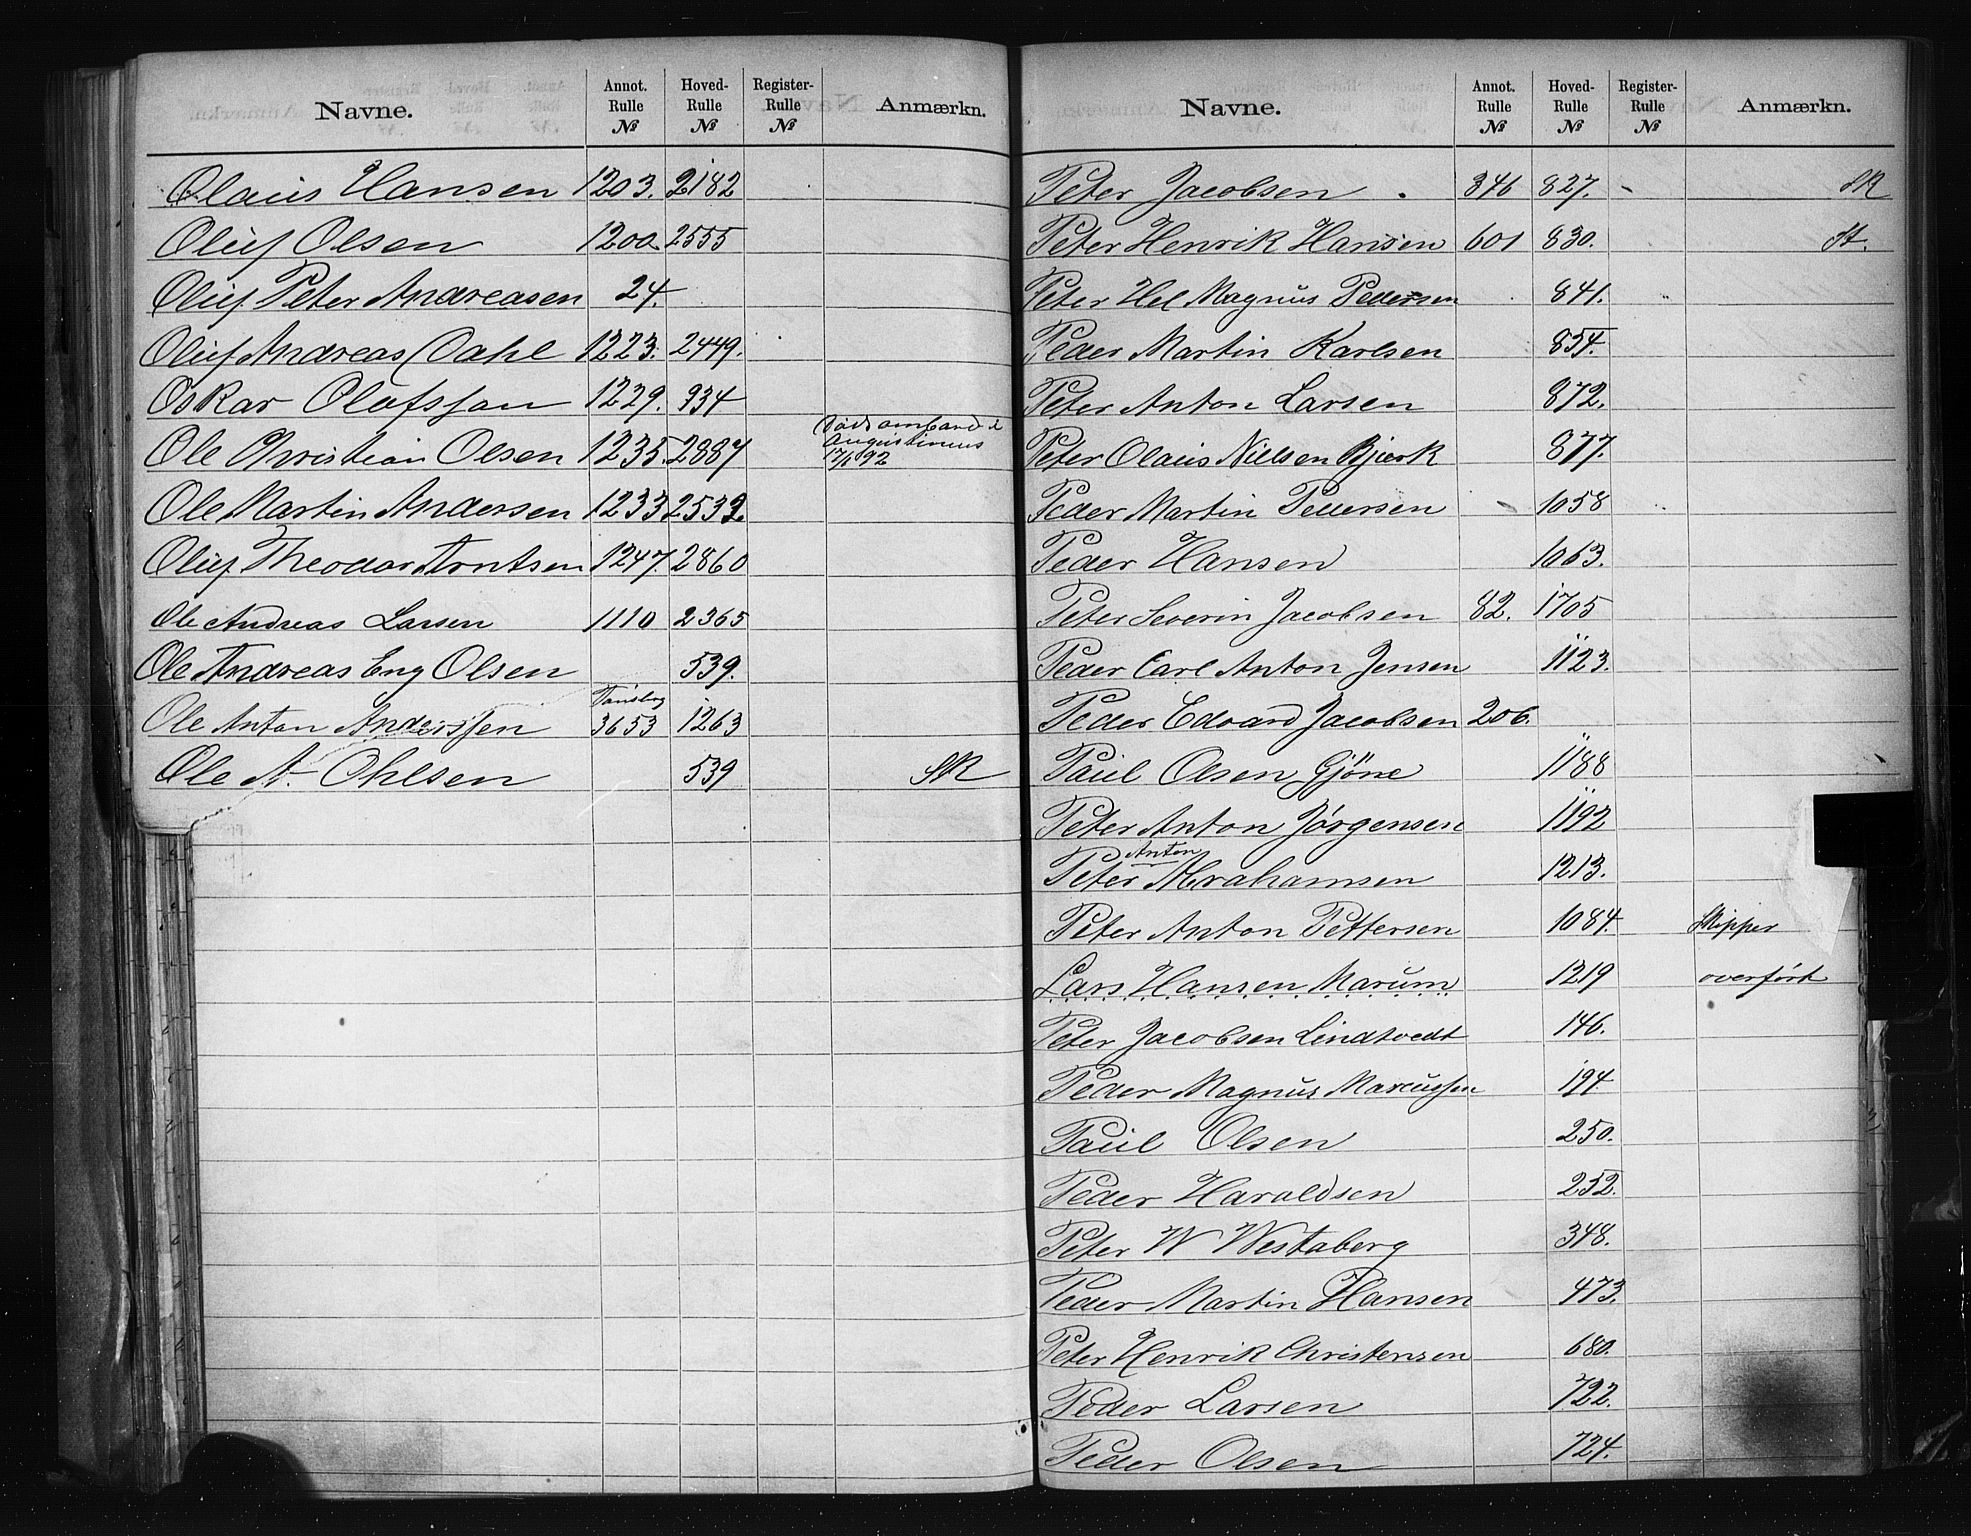 Navne. Annot. Rulle № Hoved-Rulle № Register-Rulle № Anmærkn.
Olaus Hansen 1203. 2182
Oluf Olsen 1200. 2555
Oluf Peter Andreasen 24.
Oluf Andreas Dahl 1223. 2449.
Oskar Olafsson 1229. 934
Ole Christian Olsen 1235. 2887 Död ombord i Augustinus 17/1 92
Ole Martin Andersen 1233 2532.
Oluf Theodor Arntsen 1247. 2860
Ole Andreas Larsen 1110 2365
Ole Andreas Eng Olsen 539.
Ole Anton Anderssen Tønsberg 3653 1263
Ole A. Ohlsen 539 SR
Navne. Annot. Rulle № Hoved-Rulle № Register-Rulle № Anmærkn.
Peter Jacobsen 346 827. SR
Peter Henrik Hansen 601 830. St.
Peter Hel Magnus Pedersen 841.
Peder Martin Karlsen 854.
Peter Anton Larsen 872.
Peter Olaus Nielsen Bjerk 877.
Peder Martin Pedersen 1058
Peder Hansen 1063.
Peter Severin Jacobsen 82. 1705
Peder Carl Anton Jensen 1123.
Peder Edvard Jacobsen 206.
Paul Olsen Gjöne 1188
Peter Anton Jörgensen 1192
Peter Anton Abrahamsen 1213.
Peter Anton Pettersen 1084. Skipper
Lars Hansen Marum 1219 overfört
Peter Jacobsen Lindtvedt 146.
Peder Magnus Marcussen 194.
Paul Olsen 250.
Peder Haraldsen 252.
Peter W Westaberg 348.
Peder Martin Hansen 473.
Peter Henrik Christensen 680.
Peder Larsen 722.
Peder Olsen 724.